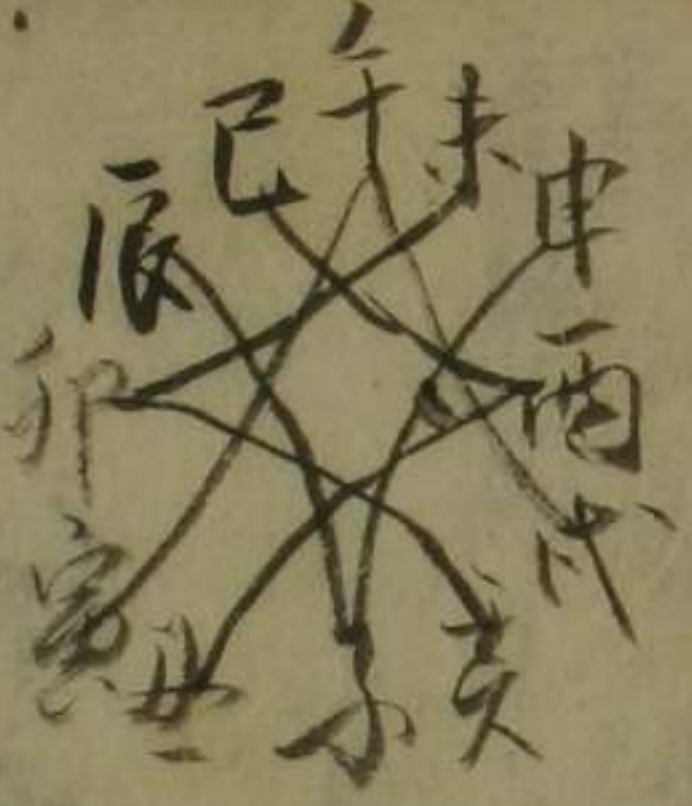 午
未
申
酉
戌
亥
子
丑
寅
卯
辰
巳